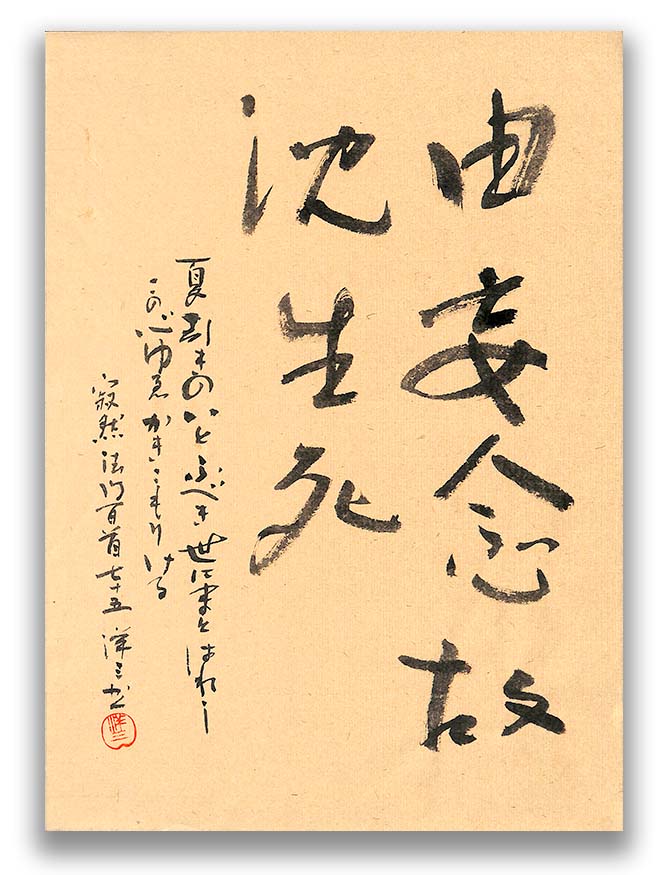 由妄念故
沈生死
夏引きのいとふべき世にまとはれし
この心ゆゑかきこもりける
寂然法門百首七十五 洋三書
洋三